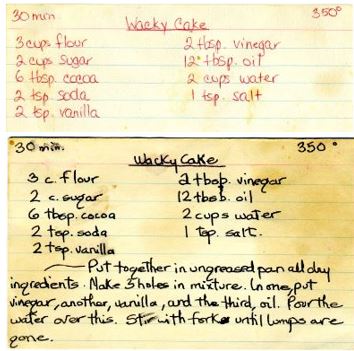 30 min 350°
Wacky Cake
3 cups flour 2 tbsp. vinegar
2 cups sugar 12 tbsp. oil
6 tbsp. cocoa 2 cups water
2 tsp. soda 1 tsp. salt
2 tsp. vanilla
30 min. 350°
Wacky Cake
3 c. flour 2 tbsp. vinegar
2 c. sugar 12 tbsb. oil
6 tbsp. cocoa 2 cups water
2 tsp. soda 1 tsp. salt.
2 tsp. vanilla
Put together in ungreased pan all dry
ingredients. Make 3 holes in mixture. In one, put
vinegar, another, vanilla, and the third, oil. Pour the
water over this. Stir with fork until lumps are
gone.